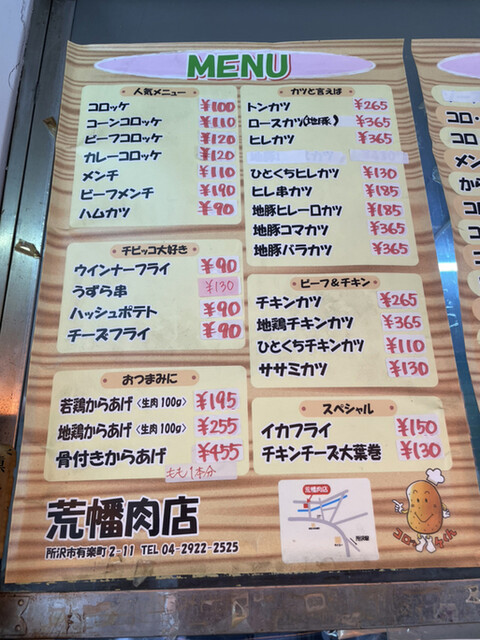 MENU
人気メニュー
コロッケ ¥100
コーンコロッケ ¥110
ビーフコロッケ ¥120
カレーコロッケ ¥120
メンチ ¥110
ビーフメンチ ¥190
ハムカツ ¥90
チビッコ大好き
ウインナーフライ ¥90
うずら串 ¥130
ハッシュポテト ¥90
チーズフライ ¥90
おつまみに
若鶏からあげ〈生肉100g〉 ¥195
地鶏からあげ〈生肉100g〉 ¥255
骨付きからあげ ¥455
もも1本分
カツと言えば
トンカツ ¥265
ロースカツ(地豚) ¥365
ヒレカツ ¥365
ひとくちヒレカツ ¥130
ヒレ串カツ ¥185
地豚ヒレ一口カツ ¥185
地豚コマカツ ¥365
地豚バラカツ ¥365
ビーフ&チキン
チキンカツ ¥265
地鶏チキンカツ ¥365
ひとくちチキンカツ ¥110
ササミカツ ¥130
スペシャル
イカフライ ¥150
チキンチーズ大葉巻 ¥130
荒幡肉店
所沢市有楽町2-11 TEL 04-2922-2525
荒幡肉店
コロ
コロ
メン
から